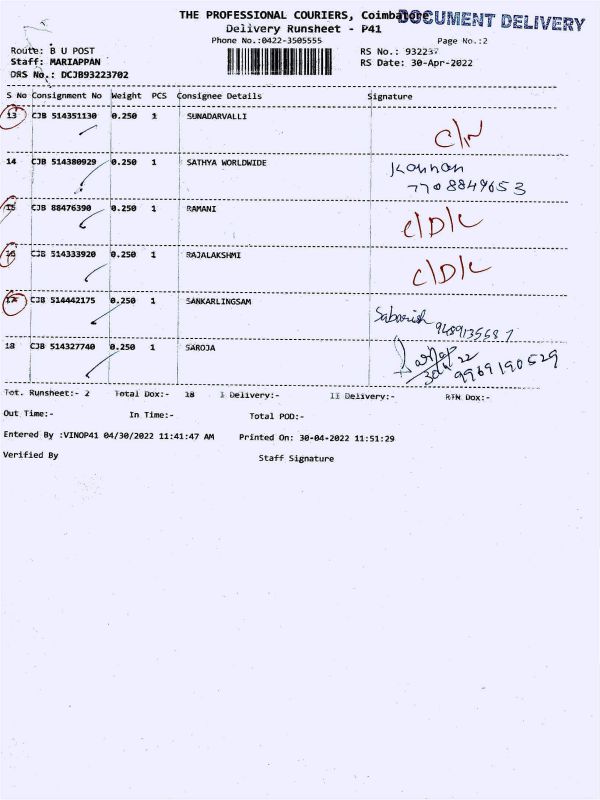 THE PROFESSIONAL COURIERS, Coimbatore
DOCUMENT DELIVERY
Delivery Runsheet - P41
Phone No.:0422-3505555
Page No.:2
Route: B U POST
RS No.: 932237
Staff: MARIAPPAN
RS Date: 30-Apr-2022
DRS No.: DCJB93223702
S No Consignment No Weight PCS Consignee Details Signature
13 CJB 514351130 0.250 1 SUNADARVALLI
14 CJB 514380929 0.250 1 SATHYA WORLDWIDE Kannan
7708849653
15 CJB 88476390 0.250 1 RAMANI C/D/L
16 CJB 514333920 0.250 1 RAJALAKSHMI C/D/L
17 CJB 514442175 0.250 1 SANKARLINGSAM
18 CJB 514327740 0.250 1 SAROJA
9989190529
Tot. Runsheet:- 2 Total Dox:- 18 I Delivery:- II Delivery:- RTN Dox:-
Out Time:- In Time:- Total POD:-
Entered By :VINOP41 04/30/2022 11:41:47 AM Printed On: 30-04-2022 11:51:29
Verified By Staff Signature